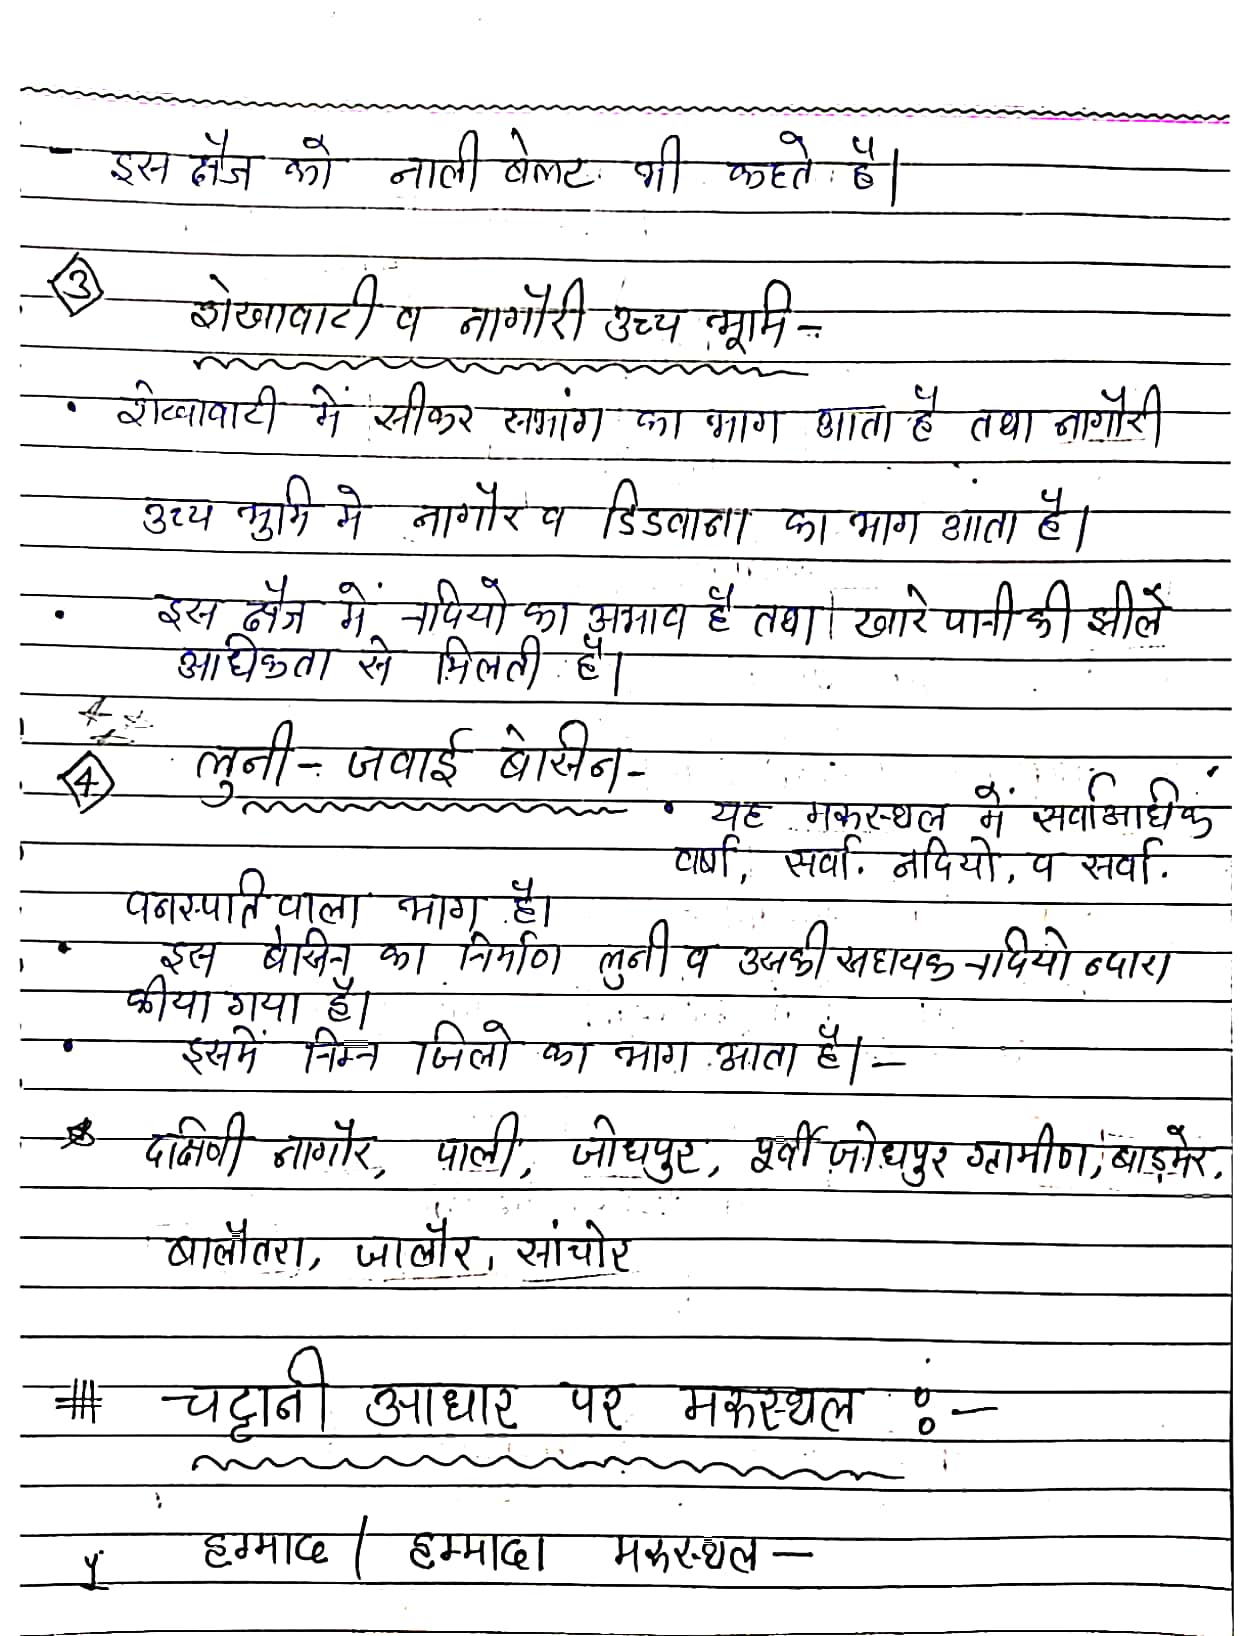 - इस क्षैत्र को नाली बेल्ट भी कहते है।
3 शेखावाटी व नागौरी उच्च भूमि -
• शेखावाटी में सीकर सभांग का भाग आता है तथा नागौरी
उच्च भुमि मे नागौर व डिडवाना का भाग आता है।
• इस क्षैत्र में नदियो का अभाव है तथा खारे पानी की झीले
अधिकता से मिलती है।
4 लुनी - जवाई बेसिन -
• यह मरूस्थल में सर्वाअधिक
वर्षा, सर्वा. नदियो, व सर्वा.
वनस्पति वाला भाग है।
• इस बेसिन का निर्माण लुनी व उसकी सहायक नदियो द्वारा
कीया गया है।
• इसमें निम्न जिलो का भाग आता है। -
दक्षिणी नागौर, पाली, जोधपुर, पूर्वी जोधपुर ग्रामीण, बाड़मेर,
बालौतरा, जालौर, सांचोर
# चट्टानी आधार पर मरूस्थल : -
हम्माद / हम्मादा मरूस्थल -